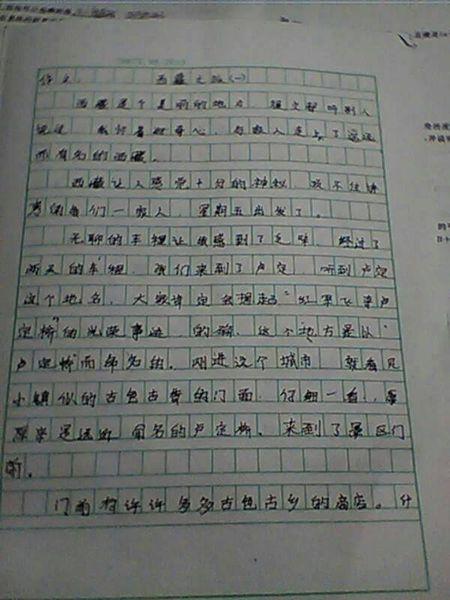 作文： 西藏之旅(一)
西藏是个美丽的地方，很久都听到人
说过，我怀着好奇心，与家人走上了遥远
而有名的西藏。
西藏让人感觉十分的神秘，
的我们一家人，星期五出发了。
无聊的车程让我感到了乏味，经过了
两天的车程，我们来到了卢定，听到卢定
这个地名，大家肯定会想起"红军飞夺卢
定桥"的光荣事迹，的确，这个地方是以"
卢定桥"而命名的。刚进这个城市，就看见
小镇似的古色古香的门面，仔细一看，
原来是远近闻名的卢定桥。来到了景区门
前。
门前有许许多多古色古乡的商店。什